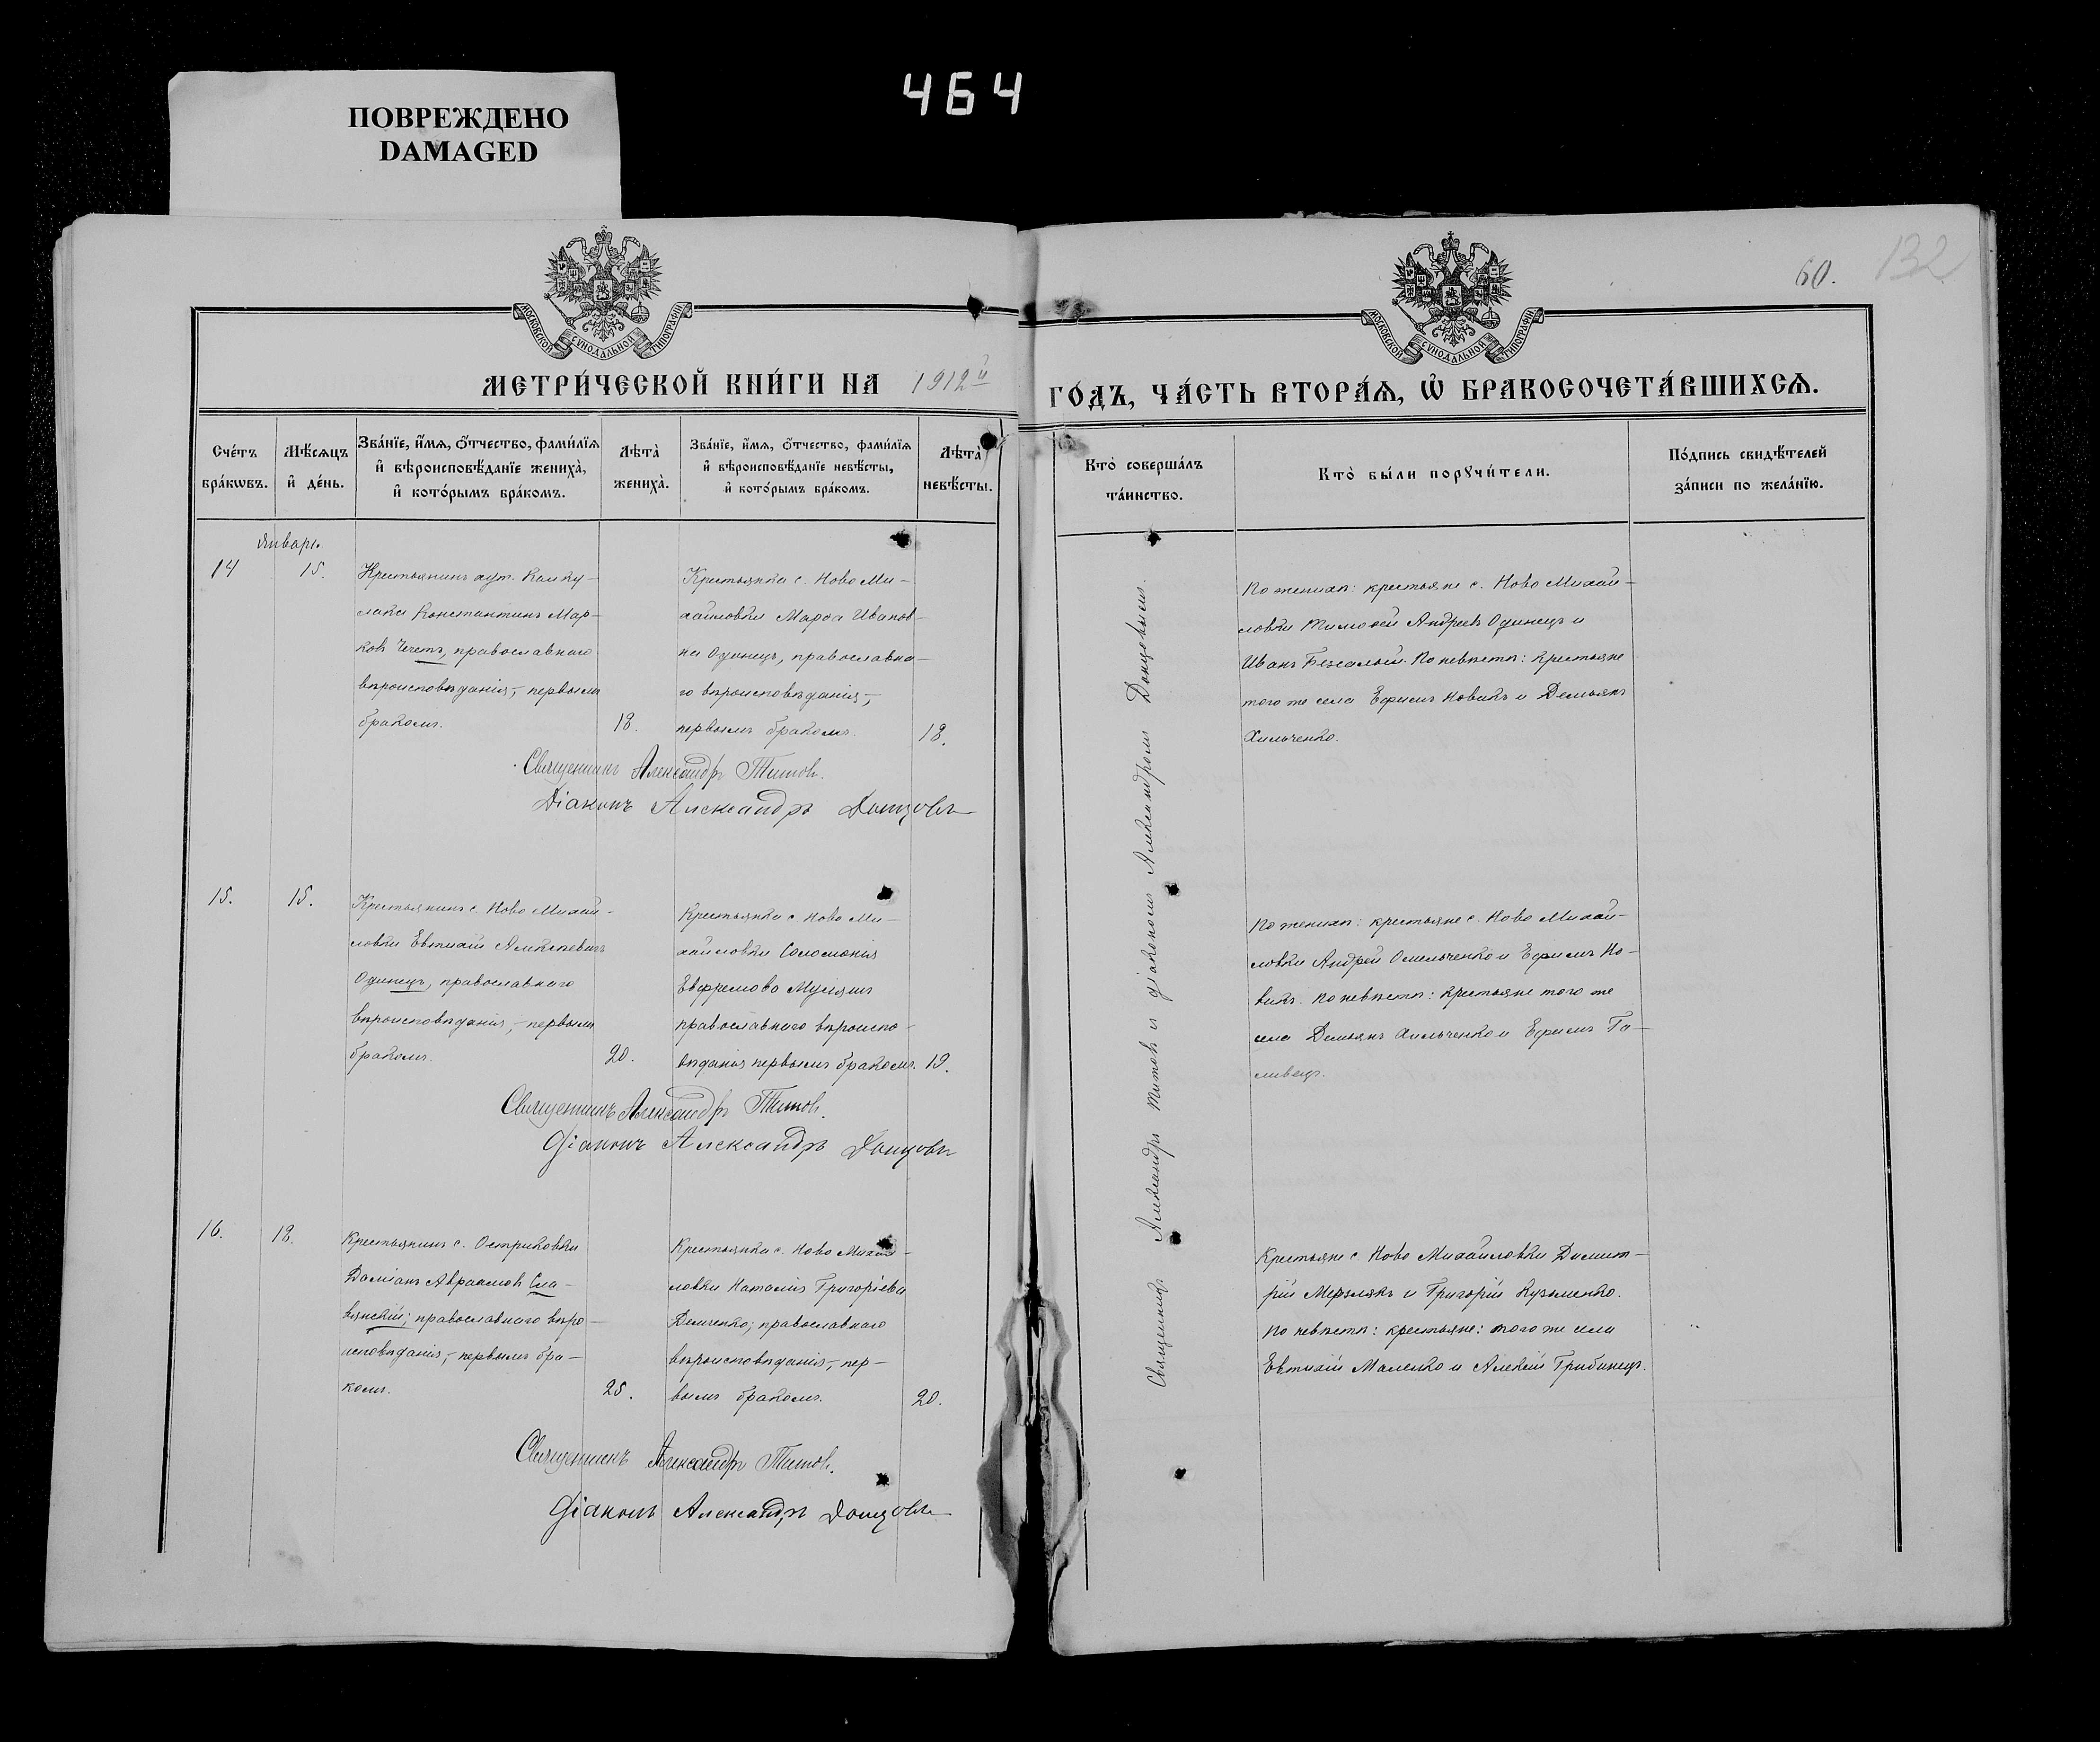 464
ПОВРЕЖДЕНО
DAMAGED
132
60.
МОСКОВСКОЙ СУНОДАЛЬНОЙ ТИПОГРАФІИ
МОСКОВСКОЙ СУНОДАЛЬНОЙ ТИПОГРАФІИ
МЕТРИ́ЧЕСКОЙ КНИ́ГИ НА 1912й
ГО́ДЪ, ЧА́СТЬ ВТОРА́Ѧ, Ѡ҆ БРАКОСОЧЕТА́ВШИХСѦ.
Сче́тъ
бра́кѡвъ.
Мѣ́сѧцъ
и҆ де́нь.
Зва́нїе, и҆́мѧ, ѻ҆́тчество, фами́лїѧ
и҆ вѣроисповѣ́данїе жениха̀,
и҆ кото́рымъ бра́комъ.
Лѣта̀
жениха̀.
Зва́нїе, и҆́мѧ, ѻ҆́тчество, фами́лїѧ
и҆ вѣроисповѣ́данїе невѣ́сты,
и҆ кото́рымъ бра́комъ.
Лѣта̀
невѣ́сты.
Кто̀ соверша́лъ
та́инство.
Кто̀ бы́ли порꙋчи́тели.
По́дпись свидѣ́телей
за́писи по жела́нїю.
Январь.
14
15.
Крестьянинъ хут. Калку-
лака Константинъ Мар-
ковъ Чечетъ, православнаго
вѣроисповѣданія,- первымъ
бракомъ.
18.
Крестьянка с. Ново Ми-
хайловки Марѳа Иванов-
на Одинецъ, православна-
го вѣроисповѣданія,-
первымъ бракомъ.
18.
По женихѣ: крестьяне с. Ново Михай-
ловки Тимоѳей Андреевъ Одинецъ и
Иванъ Безсалый. По невѣстѣ: крестьяне
того же села Ефимъ Новикъ и Демьянъ
Хильченко.
Священникъ Александръ Титовъ.
Діаконъ Александръ Донцовъ
15.
15.
Крестьянинъ с. Ново Михай-
ловки Евтихій Алексѣевичъ
Одинецъ, православнаго
вѣроисповѣданія,- первымъ
бракомъ.
20.
Крестьянка с. Ново Ми-
хайловки Соломонія
Евфремова
православнаго вѣроиспо-
вѣданія первымъ бракомъ.
19.
По женихѣ: крестьяне с. Ново Михай-
ловки Андрей Омельченко и Ефимъ Но-
викъ. По невѣстѣ: крестьяне того же
села Демьянъ Хильченко и Ефимъ Га-
ливецъ.
Священникъ Александръ Титовъ.
Діаконъ Александръ Донцовъ
16.
18.
Крестьянинъ с. Остриковки
Даміанъ Авраамовъ Сла-
вянскій; православнаго вѣро-
исповѣданія,- первымъ бра-
комъ.
25.
Крестьянка с. Ново Михай-
ловки Наталія Григоріева
Демченко; православнаго
вѣроисповѣданія,- пер-
вымъ бракомъ.
20.
Крестьяне с. Ново Михайловки Димит-
рій Мерзлякъ и Григорій Кузьменко.
По невѣстѣ: крестьяне: того же села
Евтихій Маленко и Алексій Грибинецъ.
Священникъ Александръ Титовъ.
Діаконъ Александръ Донцовъ
Священникъ Александръ Титовъ и діакономъ Александромъ Донцовымъ.